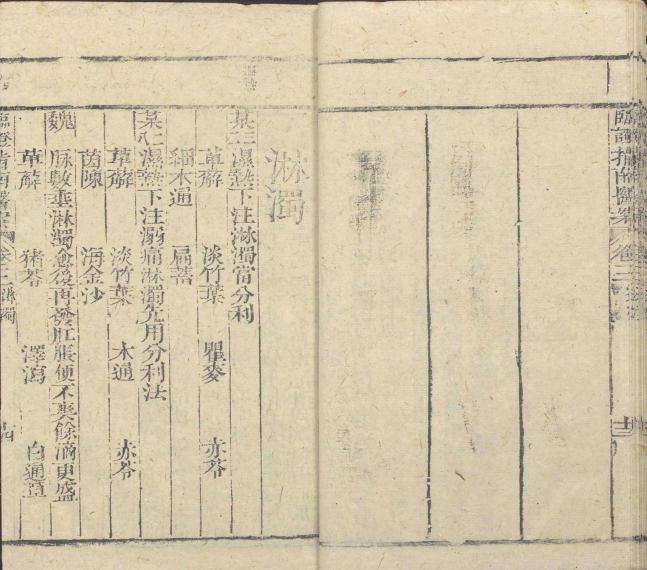 臨證指南醫案 卷三
淋濁
某 三 濕熱下注淋濁當分利
萆薢 淡竹葉 瞿麥 赤苓
細木通 扁蓄
某 仁 濕熱下注溺痛淋濁先用分利法
萆薢 淡竹葉 木通 赤苓
茵陳 海金沙
魏 脉數垂淋濁愈後再發肛脹便不爽餘滴更盛
萆薢 猪苓 澤瀉 白通草
臨證指南醫案 卷三 淋濁